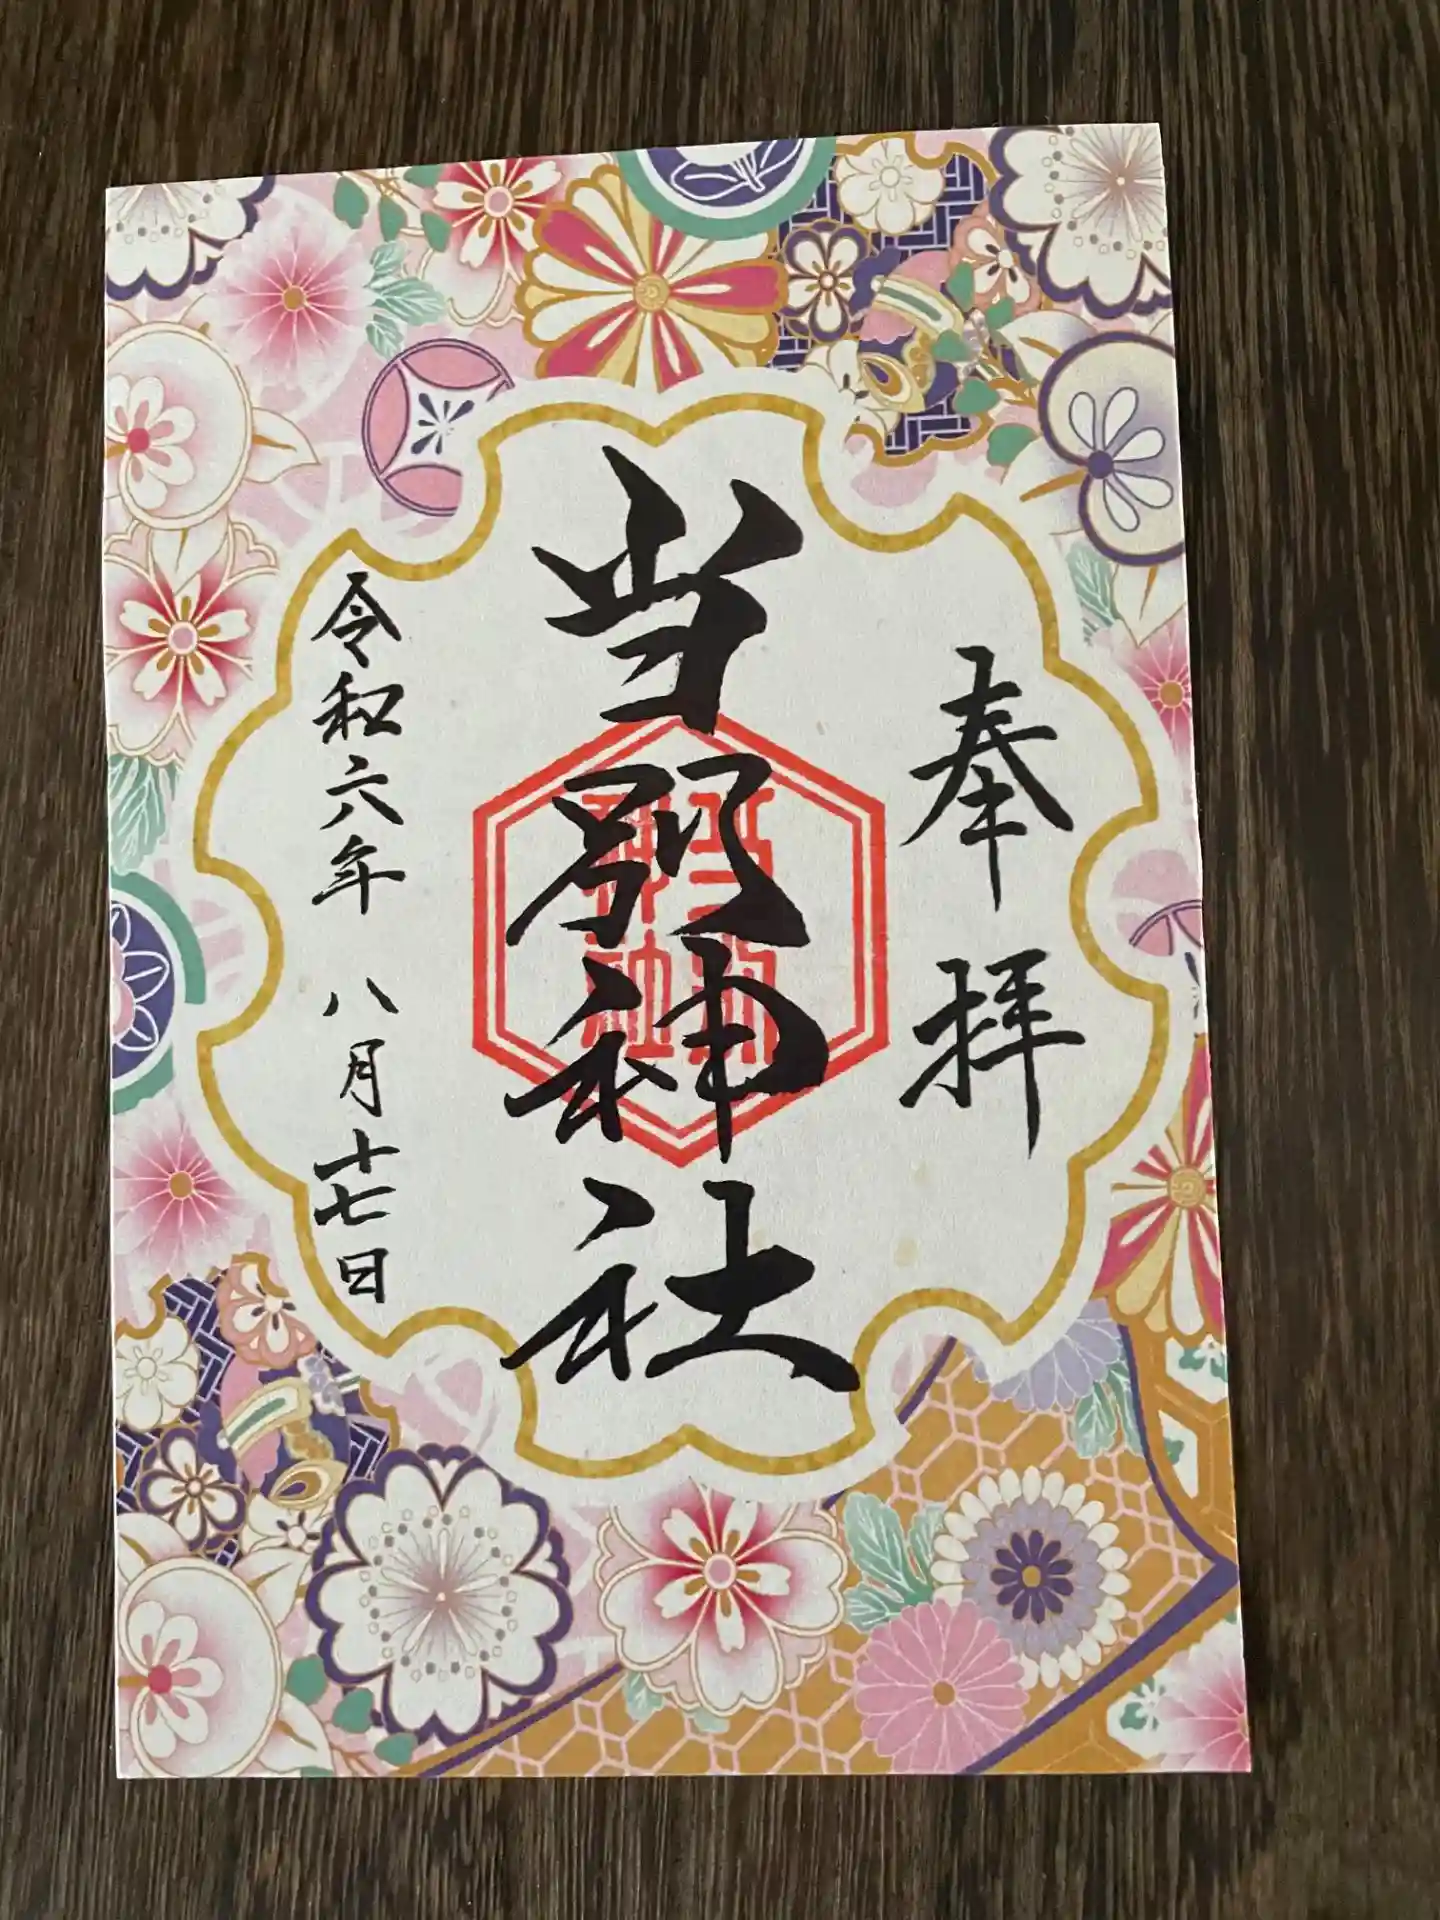 奉拝
当別神社
令和六年 八月十七日